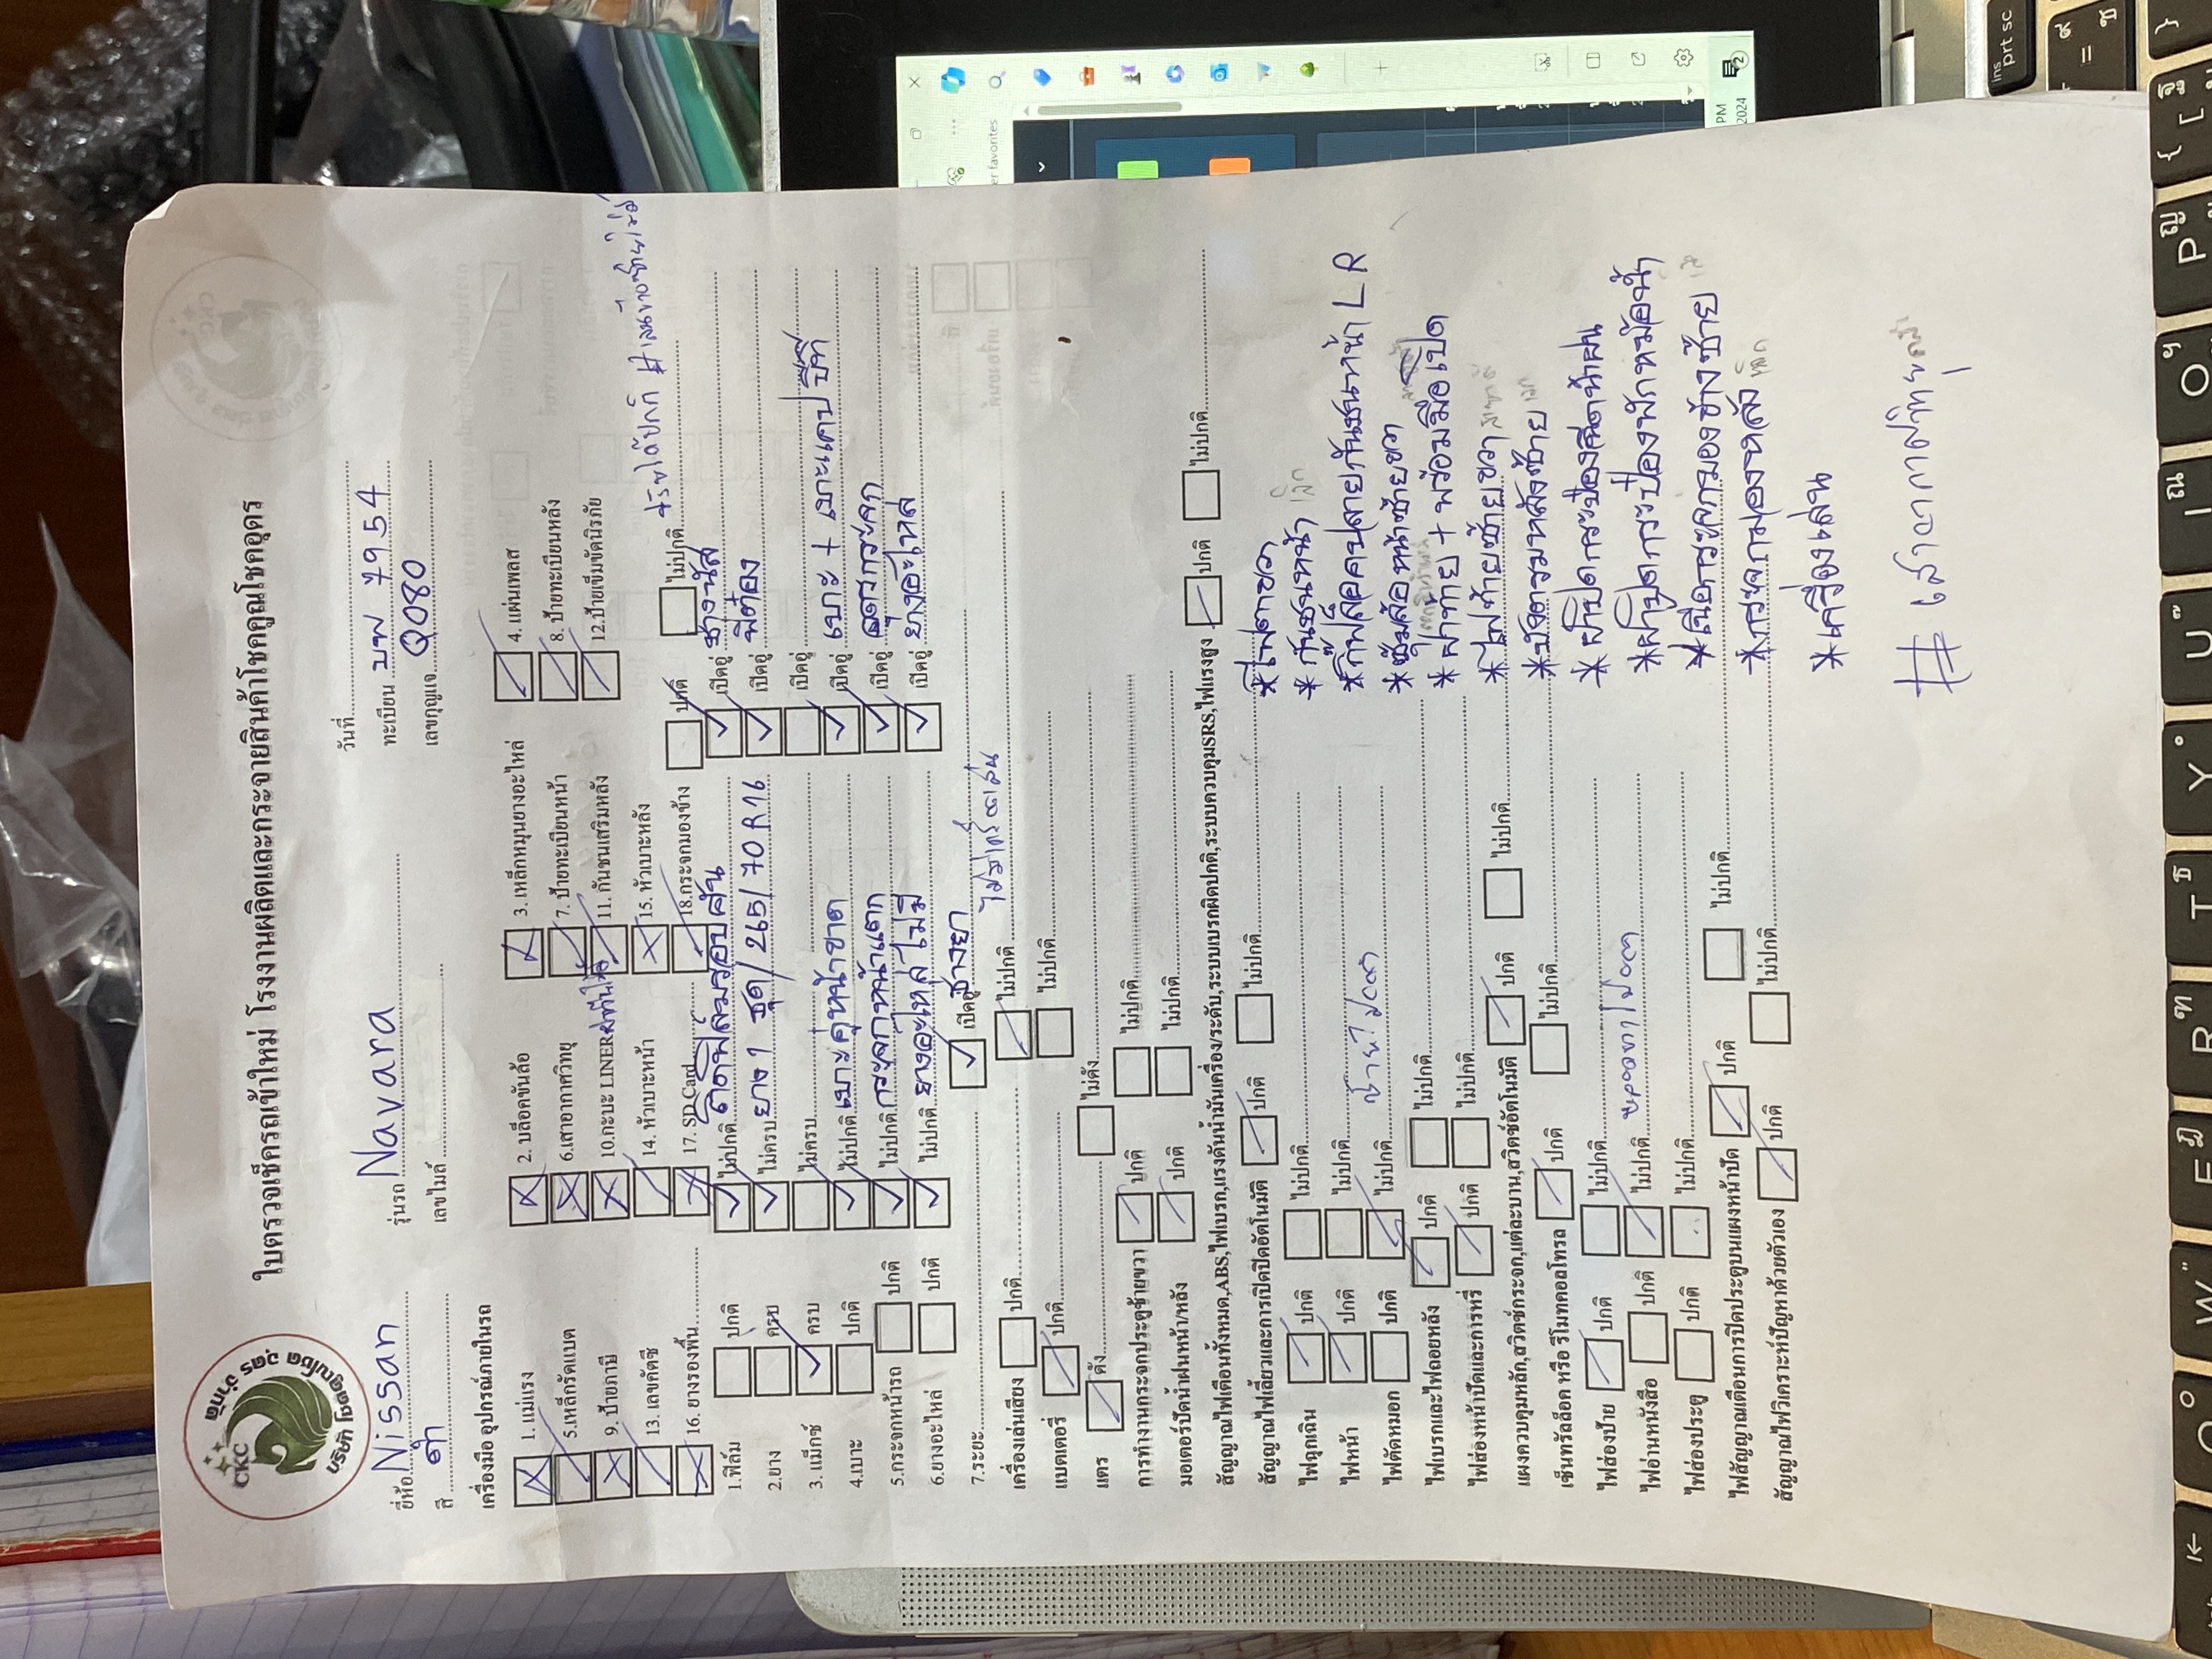 CKC
บริษัท โชคคูณโชค อุดร จำกัด
ใบตรวจเช็ครถเข้าใหม่ โรงงานผลิตและกระจายสินค้าโชคคูณโชคอุดร
วันที่
ยี่ห้อ Nissan รุ่นรถ Navara ทะเบียน บพ 7954
สี ดำ เลขไมล์ เลขกุญแจ Q080
เครื่องมือ อุปกรณ์ภายในรถ
1. แม่แรง 2. บล็อกขันล้อ 3. เหล็กหมุนยางอะไหล่ 4. แผ่นเพลส
5.เหล็กรัดแบต 6.เสาอากาศวิทยุ 7. ป้ายทะเบียนหน้า 8. ป้ายทะเบียนหลัง
9. ป้ายภาษี 10.กะบะ LINER 11. กันชนเสริมหลัง 12.ป้ายเข็มขัดนิรภัย
13. เลขคัตซี 14. หัวเบาะหน้า 15. หัวเบาะหลัง
16. ยางรองพื้น 17. SD Card 18.กระจกมองข้าง ปกติ ไม่ปกติ
1.ฟิล์ม ปกติ ไม่ปกติ ติดฟิล์มรอบคัน เบิคอู่ ช่างนัส
2.ยาง ครบ ไม่ครบ ยาง 1 ชุด / 265/70R16 เบิคอู่ พี่ต๋อง
3. แม็กซ์ ครบ ไม่ครบ เบิคอู่
4.เบาะ ปกติ ไม่ปกติ เบาะคู่หน้าขาด เบิคอู่ เบาะ + เบาะแคป
5.กระจกหน้ารถ ปกติ ไม่ปกติ กระจกหน้าแตก เบิคอู่ อุดรกระจก
6.ยางอะไหล่ ปกติ ไม่ปกติ ยางอะไหล่ ไม่มี เบิคอู่ ยางอะไหล่
7.ระยะ เบิคอู่ ช่างยา
เครื่องเล่นเสียง ปกติ ไม่ปกติ
แบตเตอรี่ ปกติ ไม่ปกติ
แตร ดัง ไม่ดัง
การทำงานกระจกประตูซ้ายขวา ปกติ ไม่ปกติ
มอเตอร์ปัดน้ำฝนหน้า/หลัง ปกติ ไม่ปกติ
สัญญาณไฟเตือนทั้งหมด,ABS,ไฟเบรก,แรงดันน้ำมันเครื่อง/ระดับ,ระบบเบรกผิดปกติ,ระบบควบคุมSRS,ไฟแรงสูง ปกติ ไม่ปกติ
สัญญาณไฟเลี้ยวและการเปิดปิดอัตโนมัติ ปกติ ไม่ปกติ
ไฟฉุกเฉิน ปกติ ไม่ปกติ
ไฟหน้า ปกติ ไม่ปกติ
ไฟตัดหมอก ปกติ ไม่ปกติ
ไฟเบรกและไฟถอยหลัง ปกติ ไม่ปกติ
ไฟส่องหน้าปัดและการหรี่ ปกติ ไม่ปกติ
แผงควบคุมหลัก,สวิตซ์กระจก,แต่ละบาน,สวิตซ์อัตโนมัติ ปกติ ไม่ปกติ
เซ็นทรัลล็อค หรือ รีโมทคอลโทรล ปกติ ไม่ปกติ
ไฟส่องป้าย ปกติ ไม่ปกติ
ไฟอ่านหนังสือ ปกติ ไม่ปกติ
ไฟส่องประตู ปกติ ไม่ปกติ
ไฟสัญญาณเตือนการปิดประตูบนแผงหน้าปัด ปกติ ไม่ปกติ
สัญญาณไฟวิเคราะห์ปัญหาด้วยตัวเอง ปกติ ไม่ปกติ
*ไฟตาขวา
*กันชนหน้า
*กิ๊ฟล็อคปลายกันชนหน้า L R
*ซุ้มล้อหน้าซ้ายขวา
*ฝาท้าย + พร้อมมือเปิด
*ไฟท้ายซ้ายขวา
*บังตรมหลังซ้าย
*ฝาปิดกระป๋องฉีดน้ำฝน
*ฝาปิดกระป๋องพักหม้อน้ำ
*เนื้อกระจกมองข้างซ้าย
*กระจกมองหลัง
*เครื่องเล่น
# เสาอากาศวิทยุ
PM
2024
prt sc
ins
Q W E R T Y U I O P